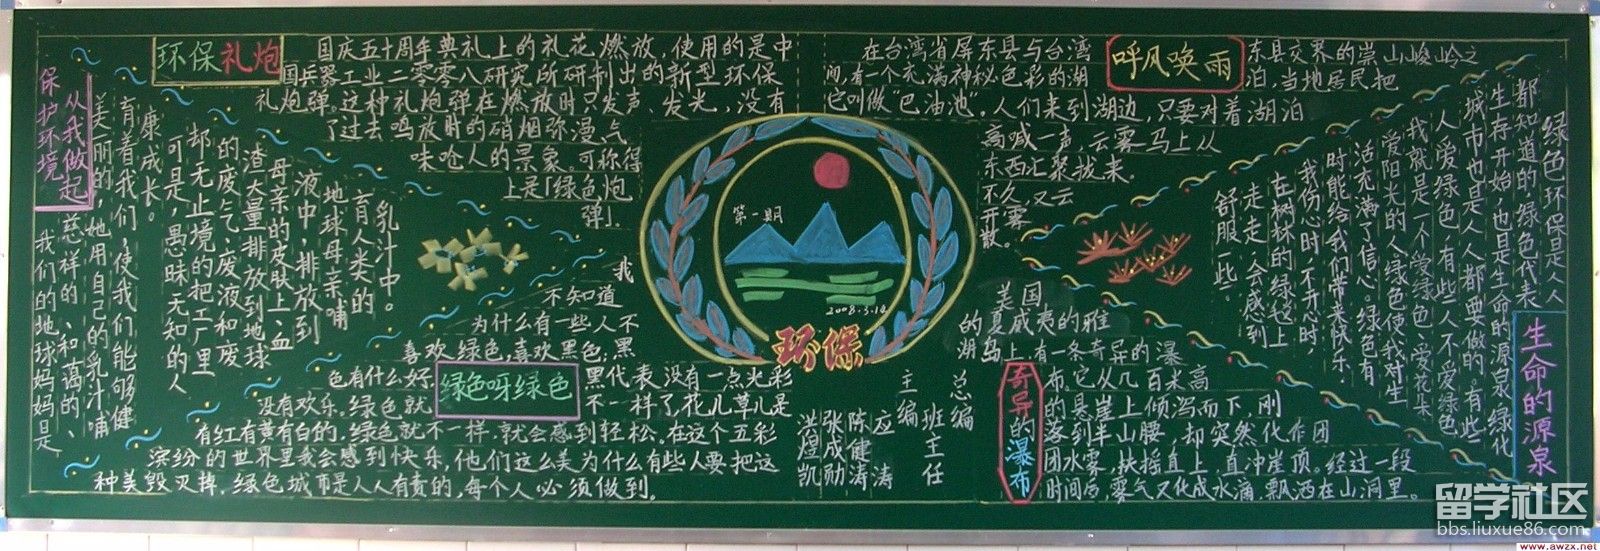 保护环境
从我做起
我们的地球妈妈是
慈祥的、和蔼的、
美丽的,她用自己的乳汁哺
育着我们,使我们能够健
康成长。
可是,愚昧无知的人
却无止境的把工厂里
的废气、废液和废
渣大量排放到地球
母亲的皮肤上,血
液中,排放到
地球母亲哺
育人类的
乳汁中。
环保礼炮
国庆五十周年典礼上的礼花燃放,使用的是中
国兵器工业二零零八研究所研制出的新型环保
礼炮弹。这种礼炮弹在燃放时只发声、发光,没有
了过去鸣放时的硝烟弥漫气
味呛人的景象。可称得
上是「绿色炮
弹」
绿色呀绿色
我
不知道
为什么有一些人不
喜欢绿色,喜欢黑色;黑
色有什么好,黑代表没有一点光彩
没有欢乐。绿色就不一样了,花儿草儿是
有红有黄有白的,绿色就不一样,就会感到轻松。在这个五彩
滨纷的世界里我会感到快乐,他们这么美为什么有些人要把这
种美毁灭掉,绿色城市是人人有责的,每个人必须做到。
第一期
2008.3.14
环保
总编
班主任
主编
应涛
陈健涛
张成勋
洪煜凯
呼风唤雨
在台湾省屏东县与台湾东县交界的崇山峻岭之
间,有一个充满神秘色彩的湖泊,当地居民把
它叫做“巴油池”。人们来到湖边,只要对着湖泊
高喊一声,云雾马上从
东西汇聚拢来。
不久,又云
开雾
散。
奇异的瀑布
美国
的夏威夷的雅
湖岛上有一条奇异的瀑
布。它从几百米高
的悬崖上倾泻而下,刚
落到半山腰,却突然化作团
团水雾,扶摇直上,直冲崖顶。经过一段
时间后,雾气又化成水滴,飘洒在山洞里。
生命的源泉
绿色环保是人人
都知道的,绿色代表
生存开始,也是生命的源泉,绿化
城市也是人人都要做的。有些
人爱绿色,有些人不爱绿色,
我就是一个爱绿色、爱花朵、
爱阳光的人,绿色使我对生
活充满了信心。绿色有
时能给我们带来快乐,
我份心时,不开心时,
在树林的绿经上
走一走,会感到
舒服一些。
留学社区
bbs.liuxue86.com
www.awzx.net